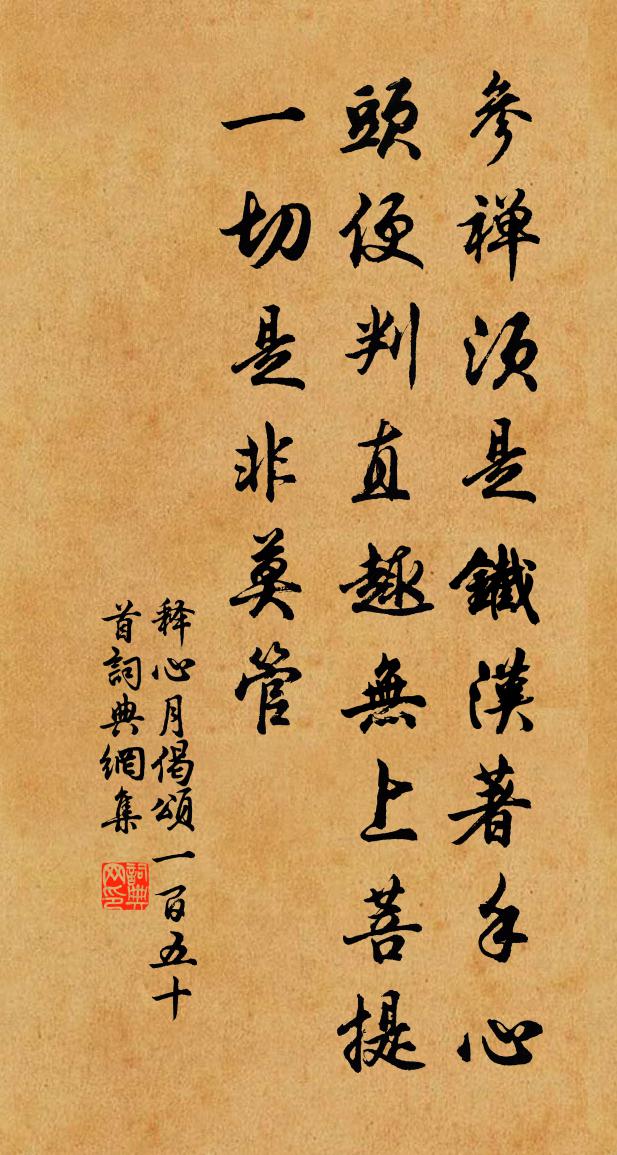 參禅須是鐵漢著手心
頭便判直趣無上菩提
一切是非莫管
释心月偈頌一百五十
首詞典網集
詞典网印